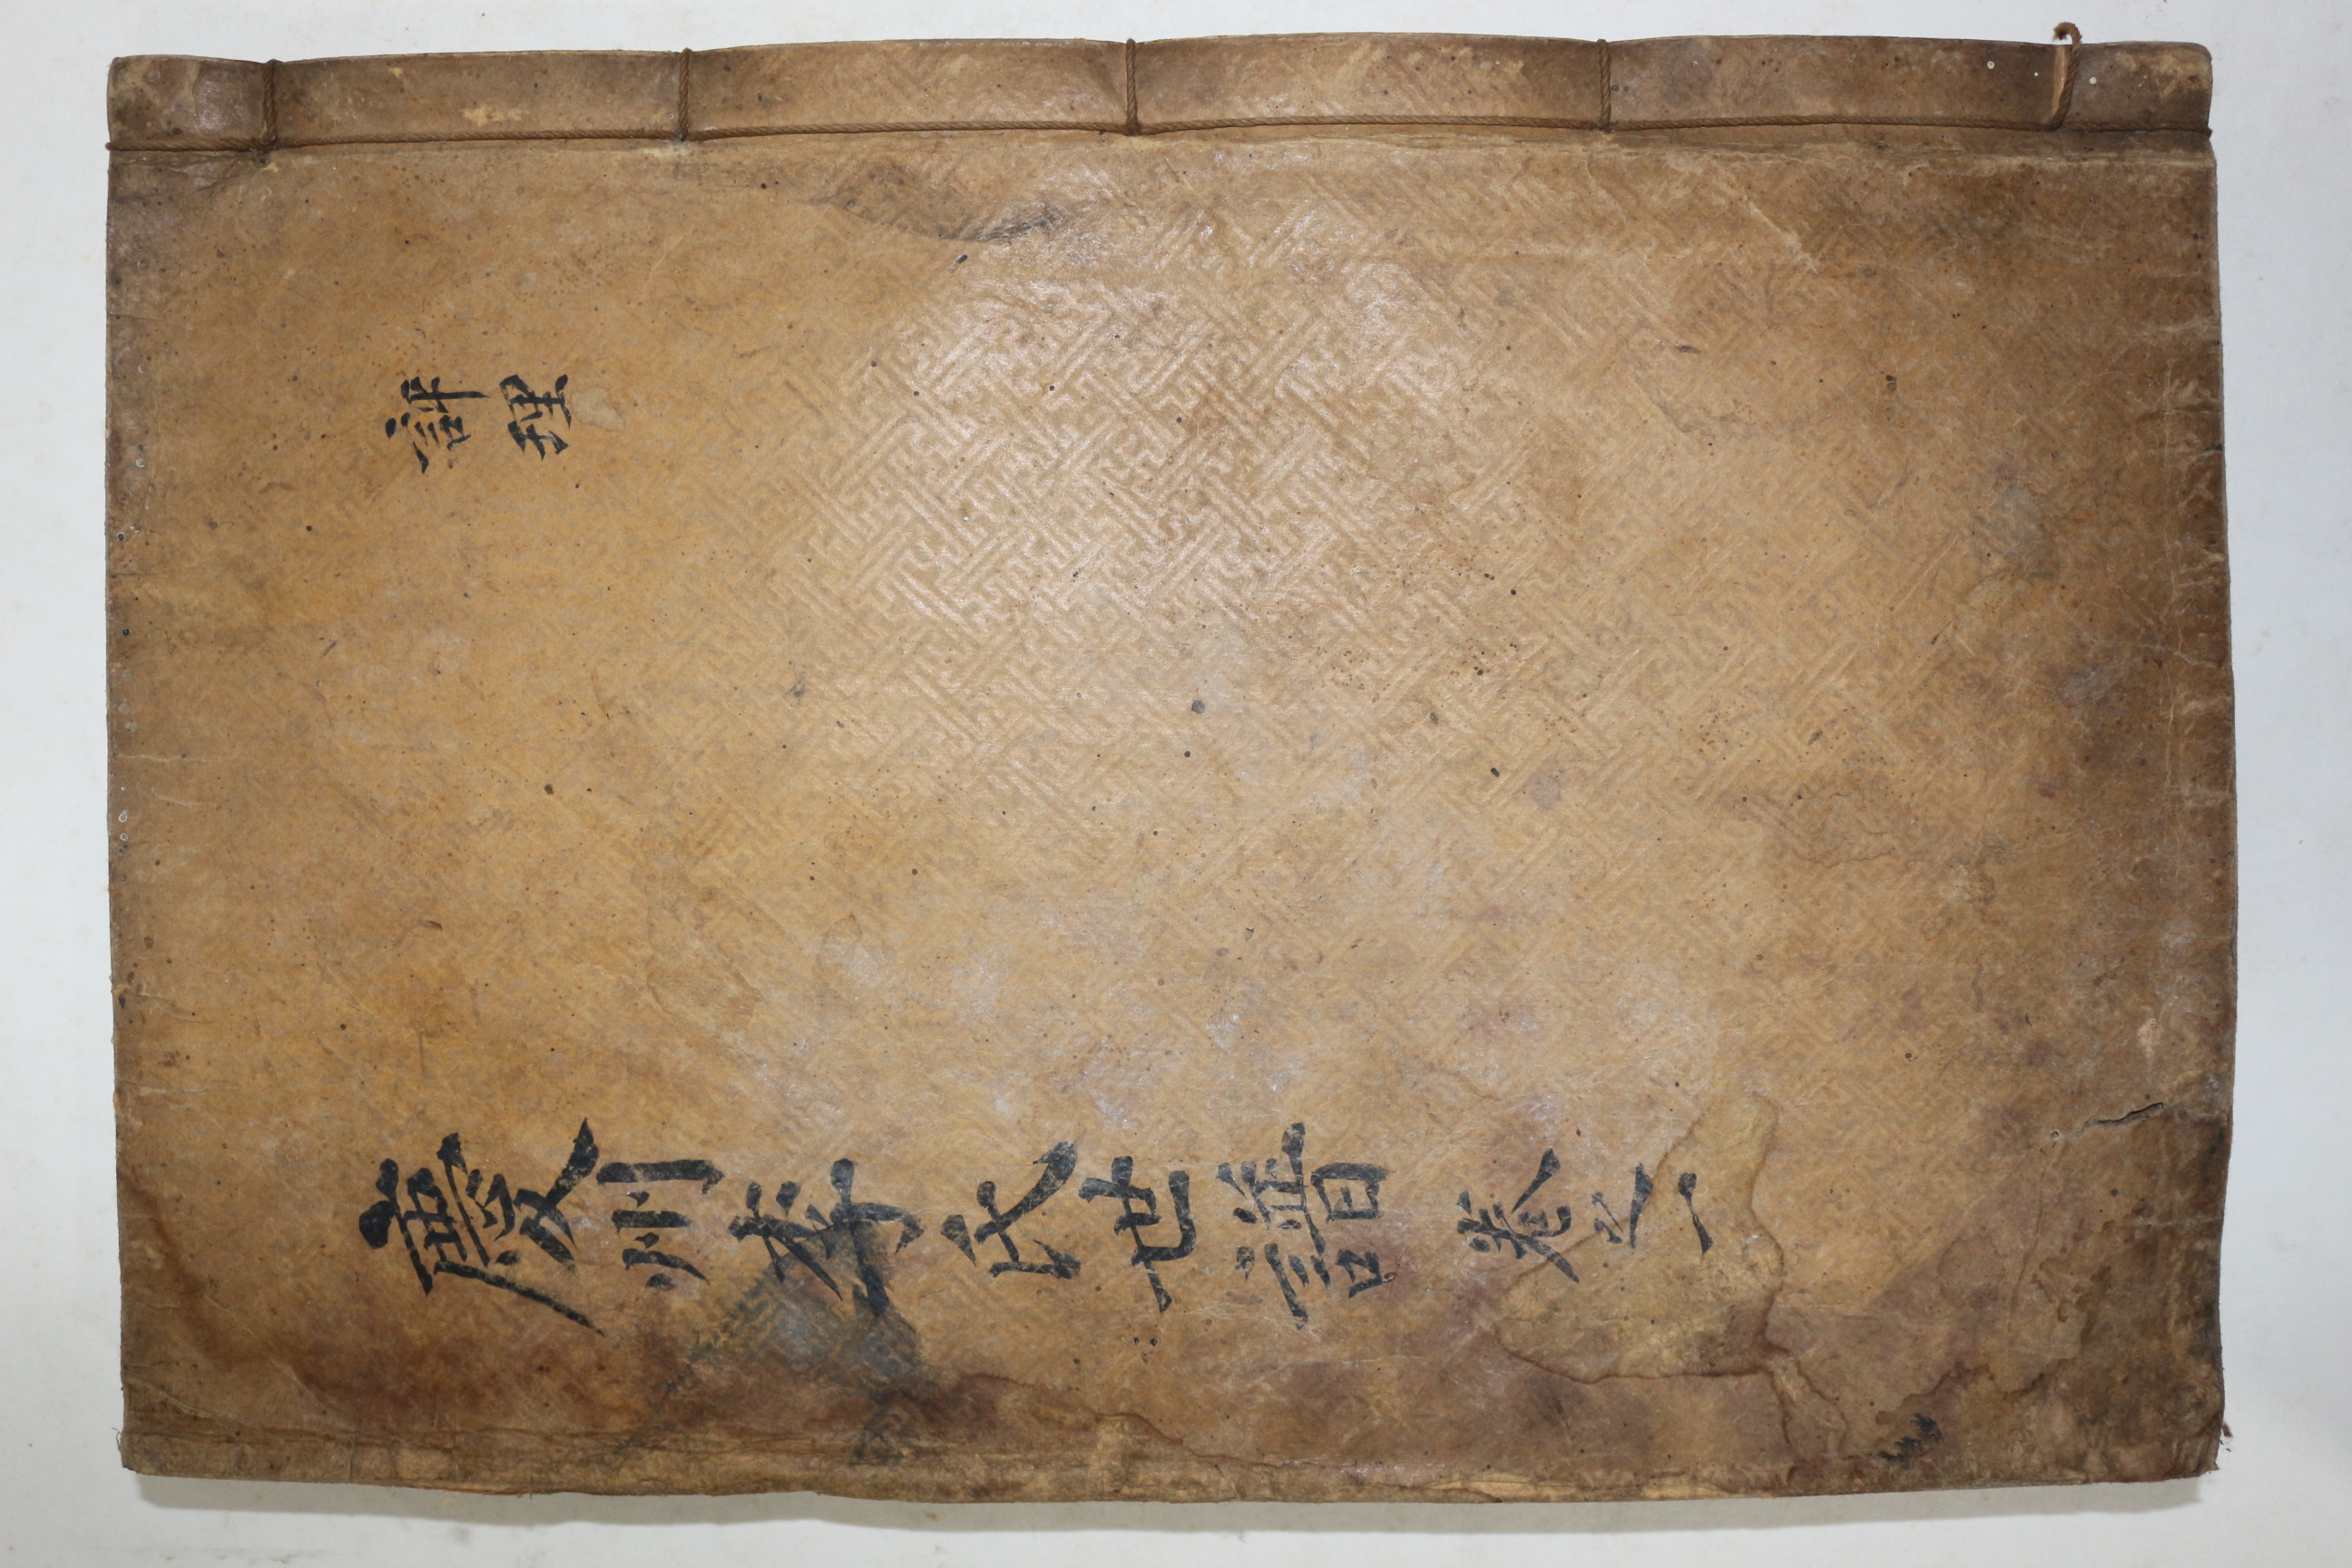 評理
慶州李氏世譜 卷之一